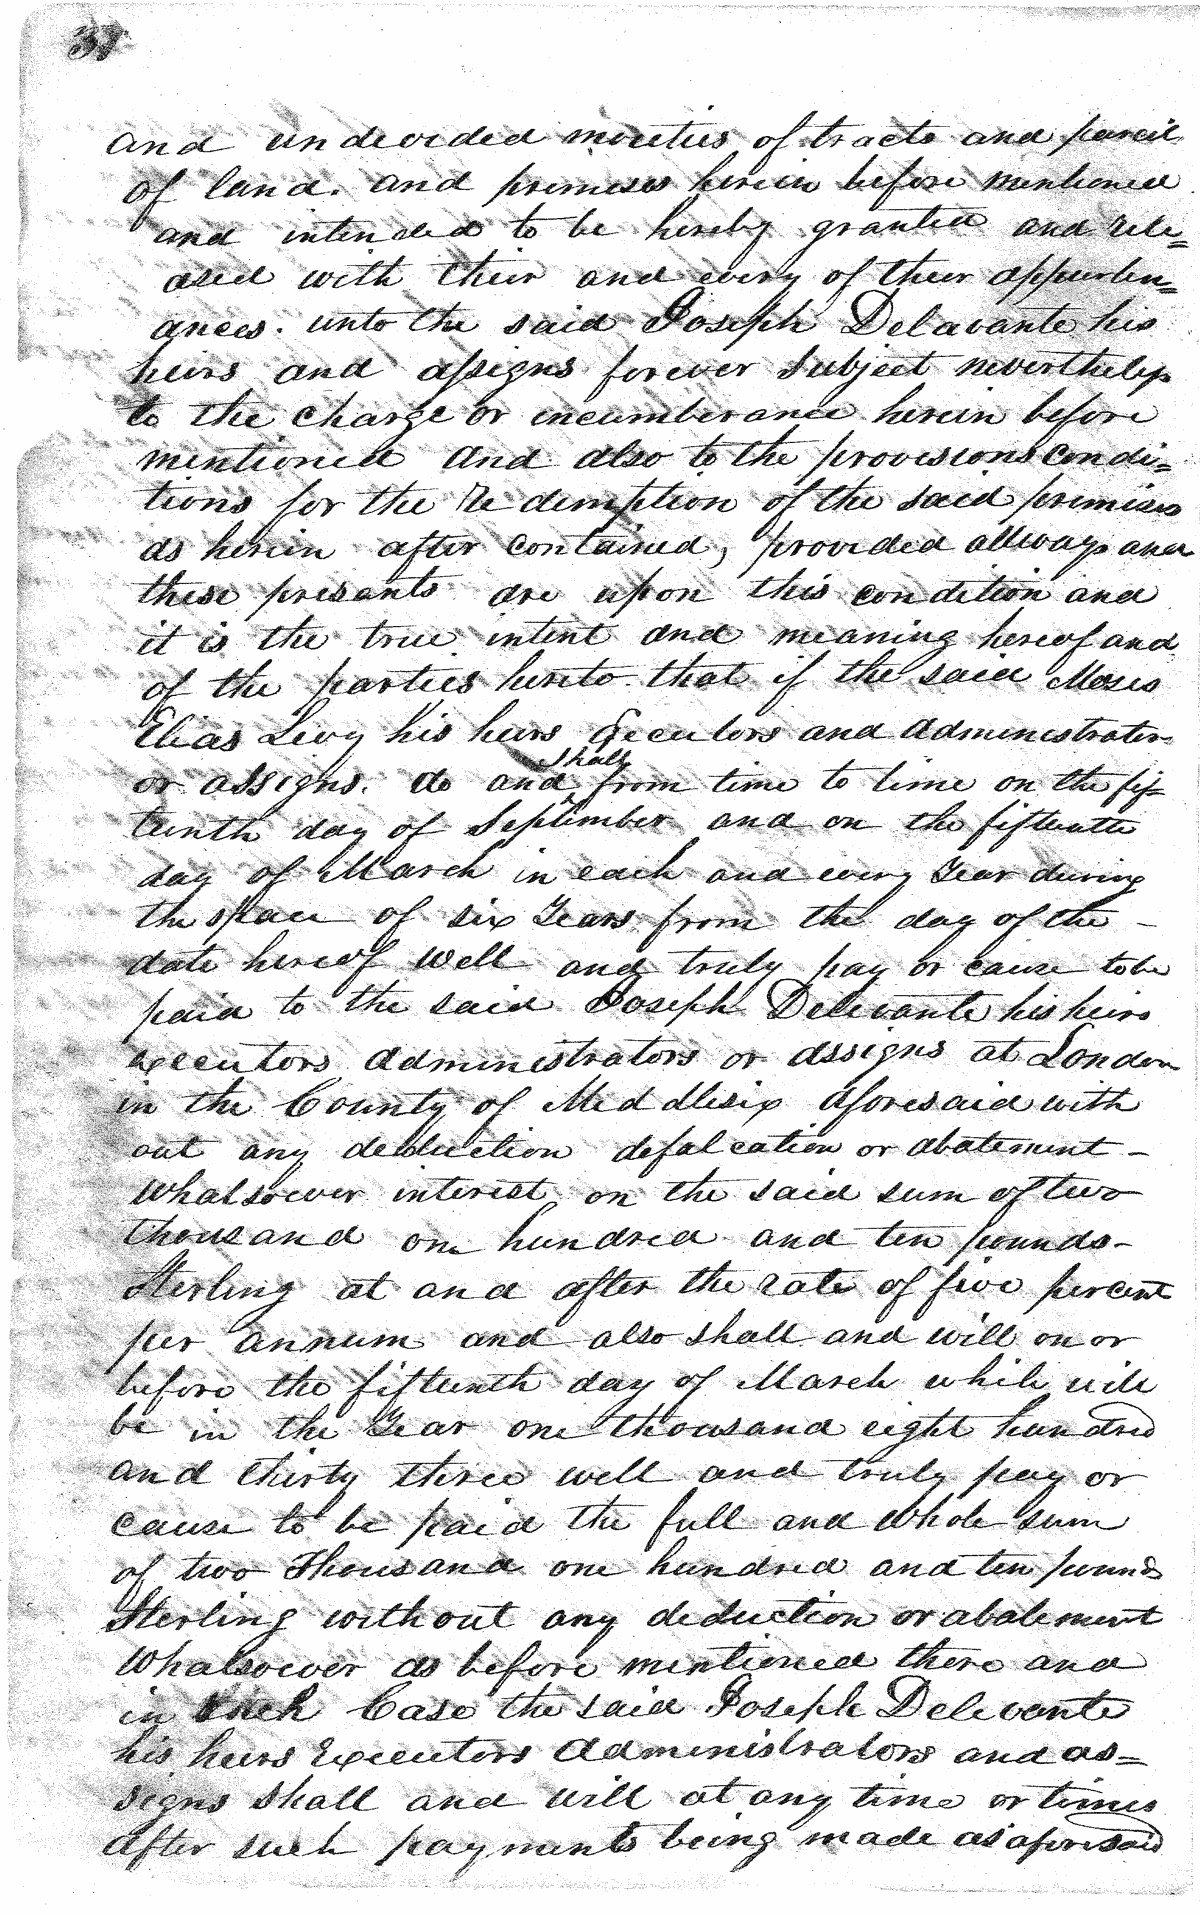 37
and undevided moieties of tracts and parcil
of land. and premises herein before mentioned
and intended to be hereby granted and rele=
ased with their and every of their appurten=
ances. unto the said Joseph Delavante his
heirs and assigns forever subject nevertheless
to the charge or incumberance herein before
mentioned and also to the provisions condi=
tions for the Redemption of the said premises
as herein after contained, provided allways and
these presants are upon this condition and
it is the true intent and meaning hereof and
of the parties hereto that if the said Moses
Elias Levy his heirs Executors and administrators
or assigns. do and shall from time to time on the fif=
teenth day of September and on the fifteenth
day of March in each and every Year during
the space of six Years from the day of the -
date hereof well and truly pay or cause to be
paid to the said Joseph Delevante his heirs
executors administrators or assigns at London
in the County of Meddlesix aforesaid with
out any deduction defalcation or abatement -
whatsoever interest on the said sum of two
thousand one hundred and ten pounds -
Sterling at and after the rate of five percent
per annum and also shall and will on or
before the fifteenth day of March while will
be in the Year one thousand eight hundred
and thirty three well and truly pay or
cause to be paid the full and whole sum
of two Thousand one hundred and ten pounds
Sterling without any deduction or abatement
Whatsoever as before mentioned there and
in such Case the said Joseph Delevante
his heirs Executors Administrators and as=
signs shall and will at any time or times
after such payments being made as aforesaid